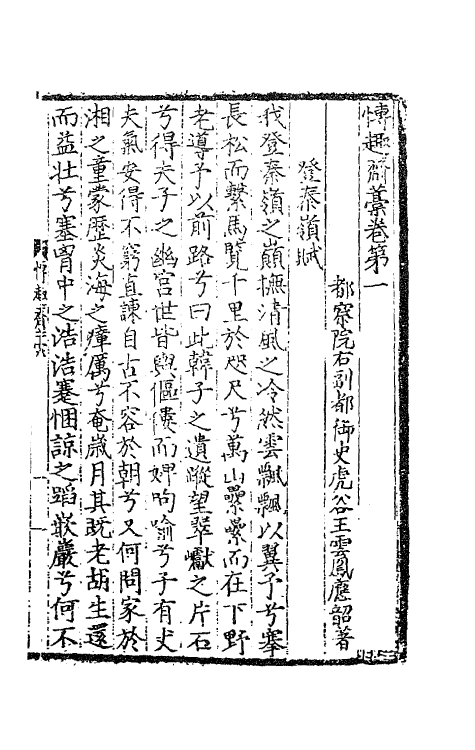 博趣齋藁卷第一
都察院右副都御史虎谷王雲鳳應韶著
登秦嶺賦
我登秦嶺之巔撫清風之冷然雲飄飄以翼予兮搴
長松而繫馬覽十里於咫尺兮萬山纍纍而在下野
老導予以前路兮曰此韓子之遺蹤望翠巘之片石
兮得夫子之幽宮世皆與傴僂而婢呴喻兮子有丈
夫氣安得不窮直諫自古不容於朝兮又何問家於
湘之童蒙歷炎海之瘴厲兮奄歲月其既老胡生還
而益壯兮塞胷中之浩浩蹇悃諒之蹈嶔巖兮何不
博趣齋 一